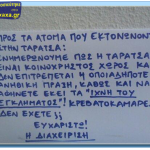 ΠΡΟΣ ΤΑ ΑΤΟΜΑ ΠΟΥ ΕΚΤΟΝΩΝΟΝΤΑΙ
ΣΤΗΝ ΤΑΡΑΤΣΑ:
ΕΝΗΜΕΡΩΝΟΥΜΕ ΠΩΣ Η ΤΑΡΑΤΣΑ
ΕΙΝΑΙ ΚΟΙΝΟΧΡΗΣΤΟΣ ΧΩΡΟΣ ΚΑΙ
ΔΕΝ ΕΠΙΤΡΕΠΕΤΑΙ Η ΟΠΟΙΑΔΗΠΟΤΕ
ΑΝΗΘΙΚΗ ΠΡΑΞΗ, ΚΑΘΩΣ ΚΑΙ ΝΑ
ΑΦΗΝΕΤΕ ΕΚΕΙ ΤΑ "ΙΧΝΗ ΤΟΥ
ΕΓΚΛΗΜΑΤΟΣ"! ΚΡΕΒΑΤΟΚΑΜΑΡΕΣ
ΔΕΝ ΕΧΕΤΕ;
ΕΥΧΑΡΙΣΤΩ!
Η ΔΙΑΧΕΙΡΙΣΗ